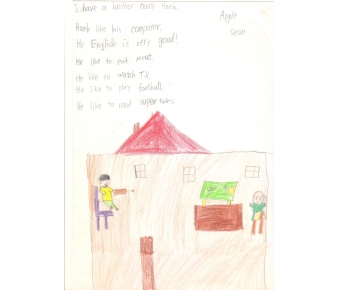 I have a brother name Hank.
Apple
Hank like his computer.
He English is very good!
He like to eat meat.
He like to watch T.V.
He like to play football.
He like to read